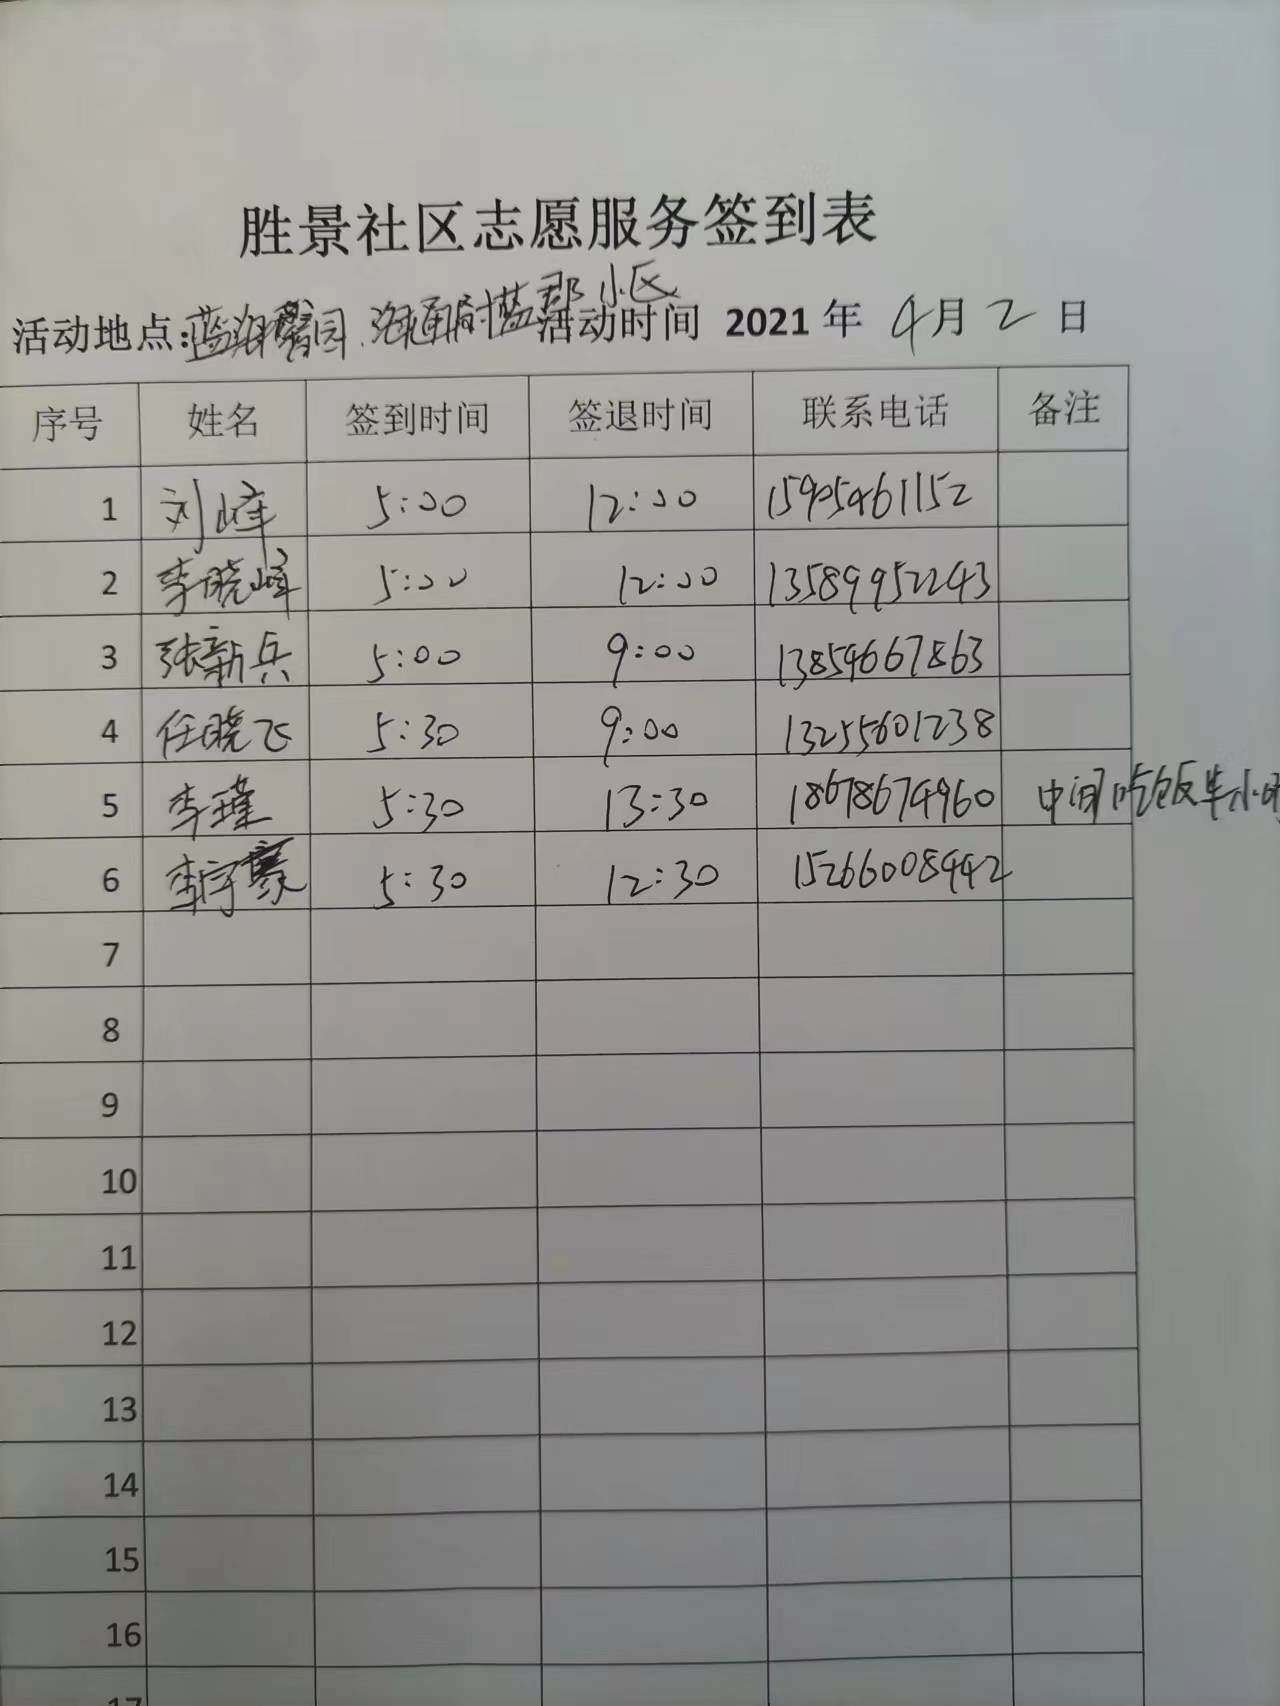 胜景社区志愿服务签到表
活动地点:蓝海馨园 海通时蓝郡小区 活动时间 2021 年 4月 2 日
序号 姓名 签到时间 签退时间 联系电话 备注
1 刘峰 5:00 12:00 15905461152
2 李晓峰 5:00 12:00 13589952243
3 张新兵 5:00 9:00 13854667863
4 任晓飞 5:30 9:00 13255601238
5 李瑾 5:30 13:30 18678674960 中间吃饭半小时
6 李宇豪 5:30 12:30 15266008442
7
8
9
10
11
12
13
14
15
16
17